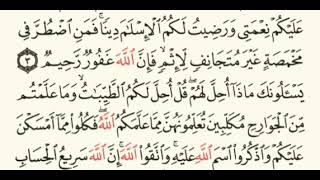 عَلَيْكُمْ نِعْمَتِي وَرَضِيتُ لَكُمُ ٱلْإِسْلَٰمَ دِينًا ۚ فَمَنِ ٱضْطُرَّ فِي
مَخْمَصَةٍ غَيْرَ مُتَجَانِفٍ لِّإِثْمٍ ۙ فَإِنَّ ٱللَّهَ غَفُورٌ رَّحِيمٌ ٣
يَسْـَٔلُونَكَ مَاذَآ أُحِلَّ لَهُمْ ۖ قُلْ أُحِلَّ لَكُمُ ٱلطَّيِّبَٰتُ ۙ وَمَا عَلَّمْتُم
مِّنَ ٱلْجَوَارِحِ مُكَلِّبِينَ تُعَلِّمُونَهُنَّ مِمَّا عَلَّمَكُمُ ٱللَّهُ ۖ فَكُلُوا۟ مِمَّآ أَمْسَكْنَ
عَلَيْكُمْ وَٱذْكُرُوا۟ ٱسْمَ ٱللَّهِ عَلَيْهِ ۖ وَٱتَّقُوا۟ ٱللَّهَ ۚ إِنَّ ٱللَّهَ سَرِيعُ ٱلْحِسَابِ